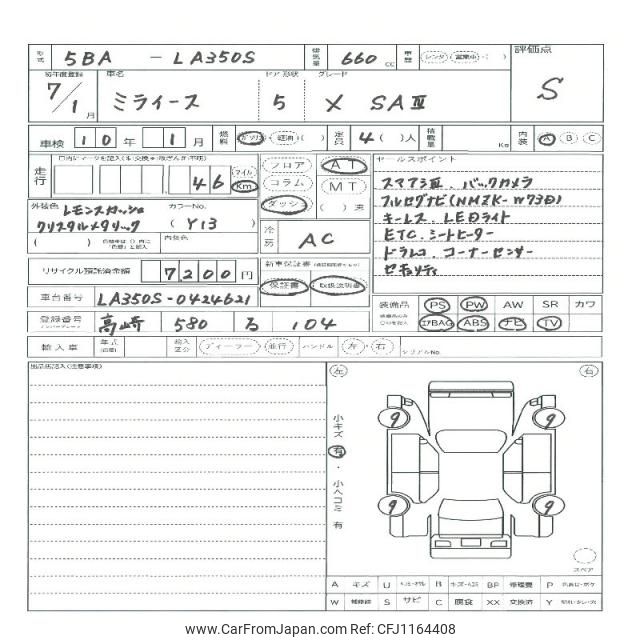 型式 5BA - LA350S 排気量 660 cc 車歴 レンタ 営業車 ( ) 評価点
初年度登録 車名 ドア 形状 グレード
7/1月 ミライース 5 X SAⅢ S
車検 10年 1月 燃料 ガソリン 軽油 ( ) 定員 4( )人 積載量 Kg 内装 A B C
走行 46 マイル Km フロア AT セールスポイント
コラム MT スマアシⅢ、バックカメラ
ダッシュ ( )速 フルセグナビ(NMZK-W73D)
外装色 レモンスカッシュ カラーNo. キーレス、LEDライト
クリスタルメタリック (Y13) 冷房 AC ETC、シートヒーター
( ) 内装色 ドラレコ、コーナーセンサー
リサイクル預託済金額 7200円 新車保証書 セキュリティ
車台番号 LA350S-0424621 保証書 取扱説明書
装備品 PS PW AW SR カワ
登録番号 高崎 580 る 104 エアBAG ABS ナビ TV
輸入車 年式 輸入区分 ディーラー 並行 ハンドル 左・右 シリアルNo.
出品店記入(注意事項) 左 右
小キズ 有 ・ 小ヘコミ 有
9 9
9 9
スペア
A キズ U B BP 修理跡 P
W 補修跡 S サビ C 腐食 XX 交換済 Y
www.CarFromJapan.com - CFJ1164408